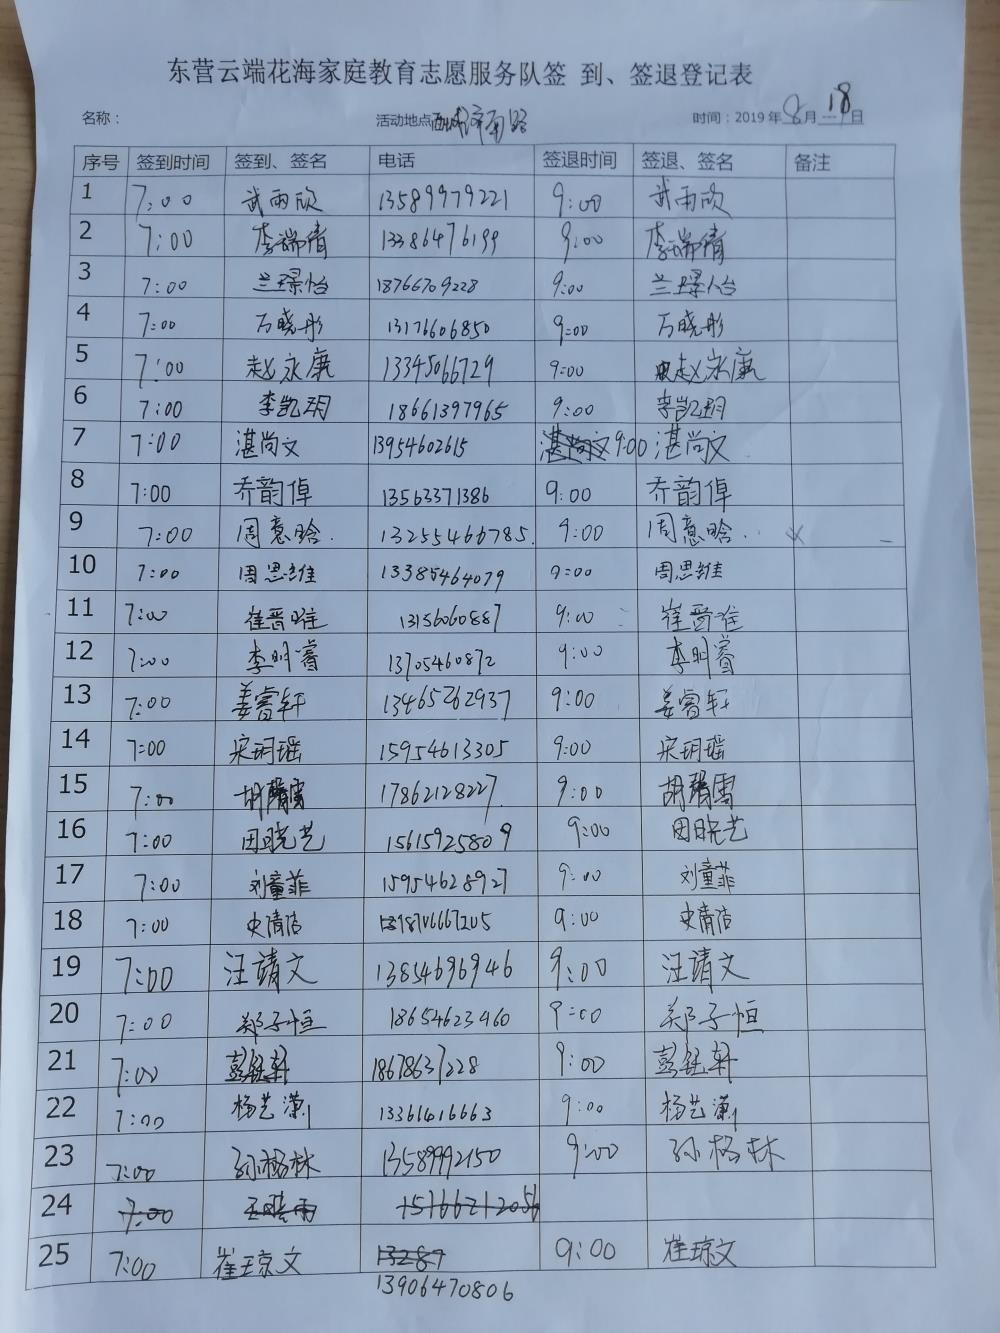 东营云端花海家庭教育志愿服务队签 到、签退登记表
名称: 活动地点 西城济南路 时间:2019年8月18日
序号 签到时间 签到、签名 电话 签退时间 签退、签名 备注
1 7:00 武雨欣 13589979221 9:00 武雨欣
2 7:00 李瑞倩 13386476199 9:00 李瑞倩
3 7:00 兰璟怡 18766709228 9:00 兰璟怡
4 7:00 万晓彤 13176606850 9:00 万晓彤
5 7:00 赵永廉 13345066729 9:00 赵永廉
6 7:00 李凯玥 18661397965 9:00 李凯玥
7 7:00 湛尚文 13954602615 湛尚文 9:00 湛尚文
8 7:00 乔韵倬 13563371386 9:00 乔韵倬
9 7:00 周意晗. 13255466785. 9:00 周意晗..
10 7:00 周思维 13385464079 9:00 周思维
11 7:00 崔晋唯 13156060887 9:00 崔晋唯
12 7:00 李明睿 13705460872 9:00 李明睿
13 7:00 姜睿轩 13465262937 9:00 姜睿轩
14 7:00 宋玥瑶 15954613305 9:00 宋玥瑶
15 7:00 胡馨雪 17862128227. 9:00 胡馨雪
16 7:00 田晓艺 15615925809 9:00 田晓艺
17 7:00 刘童菲 15954628927 9:00 刘童菲
18 7:00 史清洁 18706667205 9:00 史清洁
19 7:00 汪靖文 13854696946 9:00 汪靖文
20 7:00 郑子恒 18654623960 9:00 郑子恒
21 7:00 彭钰轩 18678637228 9:00 彭钰轩
22 7:00 杨艺潇 13361416663 9:00 杨艺潇
23 7:00 孙格林 13589992150 9:00 孙格林
24 7:00 15166212056
25 7:00 崔琼文 13287 9:00 崔琼文
13906470806